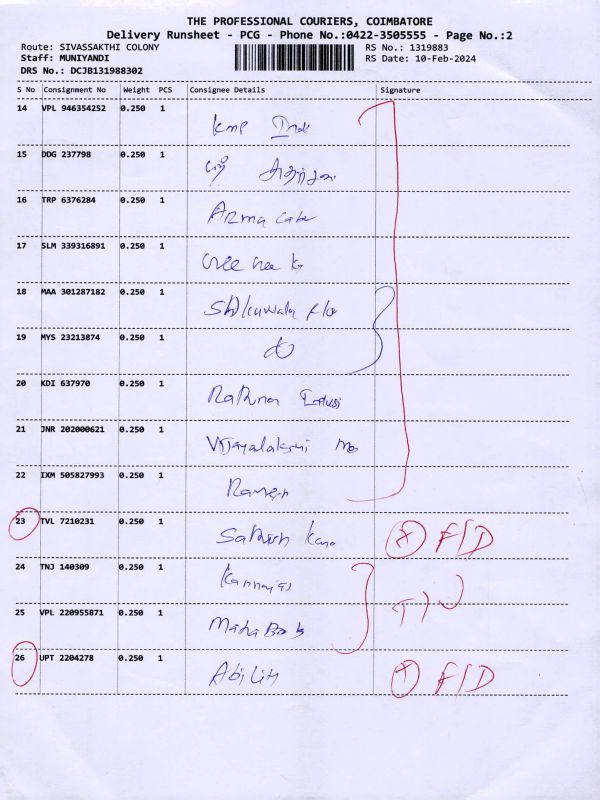 THE PROFESSIONAL COURIERS, COIMBATORE
Delivery Runsheet - PCG - Phone No.:0422-3505555 - Page No.:2
Route: SIVASSAKTHI COLONY
RS No.: 1319883
Staff: MUNIYANDI
RS Date: 10-Feb-2024
DRS No.: DCJB131988302
S No Consignment No Weight PCS Consignee Details Signature
14 VPL 946354252 0.250 1 Kmp
15 DDG 237798 0.250 1
16 TRP 6376284 0.250 1
17 SLM 339316891 0.250 1
18 MAA 301287182 0.250 1
19 MYS 23213874 0.250 1
20 KDI 637970 0.250 1 Rathna
21 JNR 202000621 0.250 1 Vijayalakshmi
22 IXM 505827993 0.250 1 Ramesh
23 TVL 7210231 0.250 1 Sathish F/D
24 TNJ 140309 0.250 1
25 VPL 220955871 0.250 1 Maha
26 UPT 2204278 0.250 1 Ability F/D